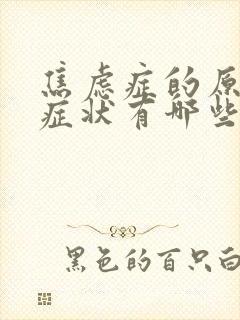 焦虑症的原
症状有哪些
黑色的百只白